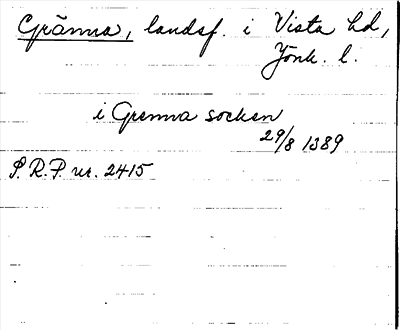 Gränna, landsf. i Vista hd,
Jönk. l.
i Grenna socken
29/8 1389
S. R. P. nr. 2415